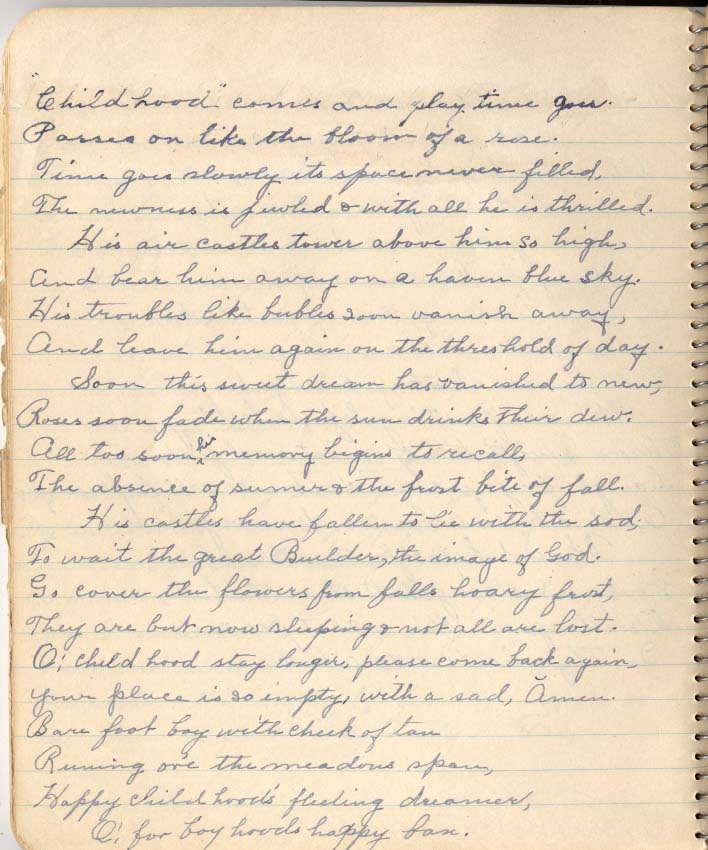 "Child hood" comes and play time goes.
Passes on like the bloom of a rose.
Time goes slowly its space never filled,
The newness is jewled & with all he is thrilled.
His air castles tower above him so high,
And bear him away on a haven blue sky.
His troubles like bubles soon vanish away,
And leave him again on the threshold of day.
Soon this sweet dream has vanished to new,
Roses soon fade when the sun drinks their dew.
All too soon his memory begins to recall,
The absence of sumer & the frost bite of fall.
His castles have fallen to lie with the sod,
To wait the great Builder, the image of God.
Go cover the flowers from falls hoary frost,
They are but now sleeping & not all are lost.
O; child hood stay longer, please come back again,
your place is so empty, with a sad, Amen.
Bare foot boy with cheek of tan
Runing o're the meadows span,
Happy child hood's fleeting dreamer,
O; for boy hoods happy ban.